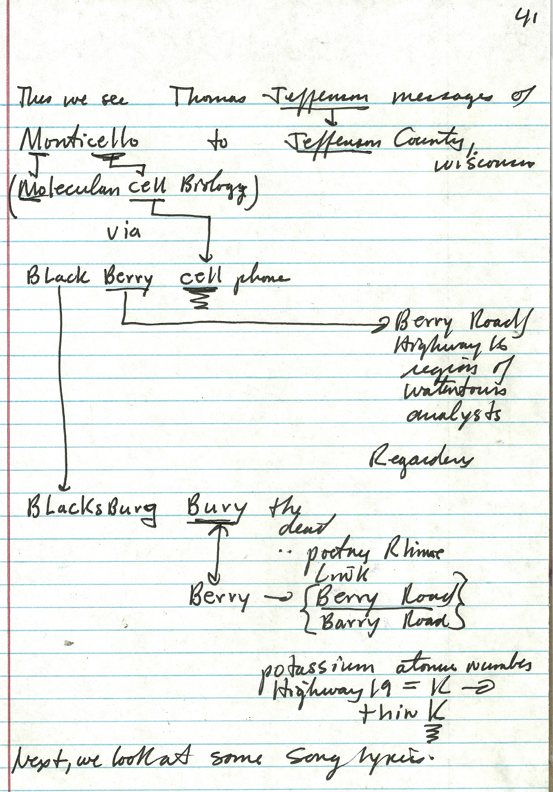 41
Thus we see Thomas Jefferson messages of
Monticello to Jefferson County,
Wisconsin
(Molecular cell Biology)
via
BLack Berry cell phone
Berry Road/
Highway 16
region of
Watertown
analysts
Regarding
BLacksBurg Bury the
dead
.. poetry Rhime
Link
Berry → {Berry Road}
{Barry Road}
potassium atomic number
Highway 19 = K →
thin K
Next, we look at some song lyrics.